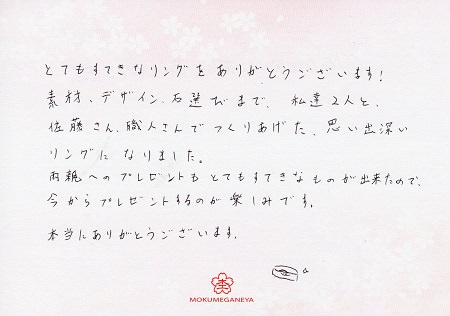 とてもすてきなリングをありがとうございます!
素材、デザイン、石選びまで、私達2人と、
佐藤さん、職人さんでつくりあげた、思い出深い
リングになりました。
両親へのプレゼントもとてもすてきなものが出来たので、
今からプレゼントするのが楽しみです。
本当にありがとうございます。
MOKUMEGANEYA